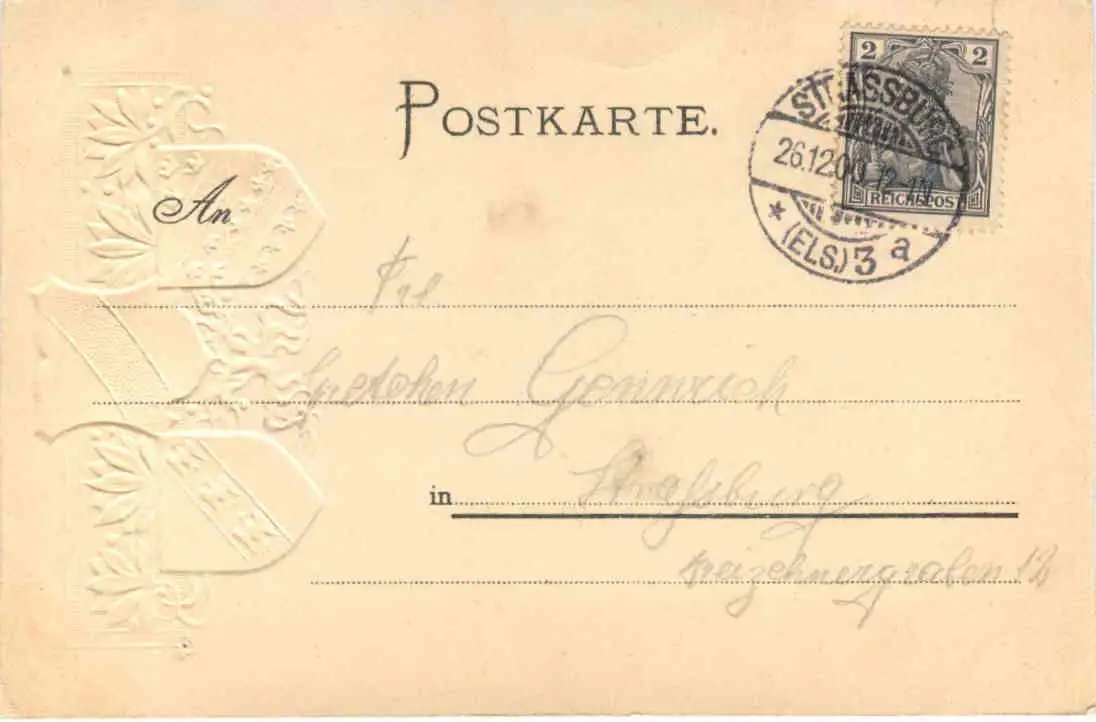 POSTKARTE.
2 2
REICHSPOST
STRASSBURG
26.12.00. 12-1N
* (ELS.) 3 a *
An
Frl
Gretchen
in Straßburg
Dreizehnergraben